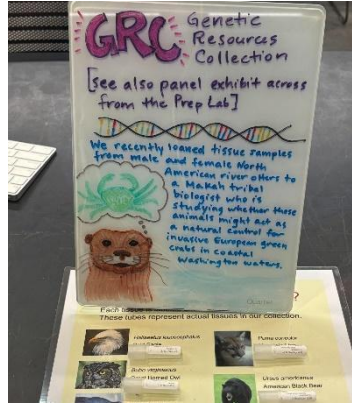 GRC Genetic
Resources
Collection
[see also panel exhibit across
from the Prep Lab]
We recently loaned tissue samples
from male and female North
American river otters to
a Makah tribal
biologist who is
studying whether these
animals might act as
a natural control for
invasive European green
crabs in coastal
Washington waters.
Quartet
?
Each tissue
These tubes represent actual tissues in our collection.
Haliaeetus leucocephalus
Bald Eagle
Puma concolor
Bubo virginianus
Great Horned Owl
Ursus americanus
American Black Bear